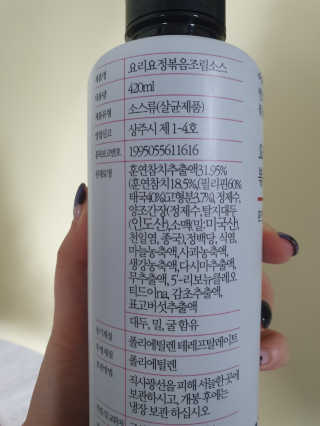 제품명 요리요정볶음조림소스
내용량 420ml
식품유형 소스류(살균제품)
영업신고 상주시 제 1-4호
품목보고번호 1995055611616
원재료명 훈연참치추출액31.95%
(훈연참치18.5%,(필리핀60%
태국40%)고형분3.7%), 정제수,
양조간장(정제수,탈지대두
(인도산),소맥(밀:미국산),
천일염, 종국), 정백당, 식염,
마늘농축액,사과농축액,
생강농축액,다시마추출액,
무추출액, 5'-리보뉴클레오
티드이na, 감초추출액,
표고버섯추출액
대두, 밀, 굴 함유
용기재질 폴리에틸렌 테레프탈레이트
폴리에틸렌
직사광선을 피해 서늘한 곳에
보관하시고, 개봉 후에는
냉장 보관 하십시오